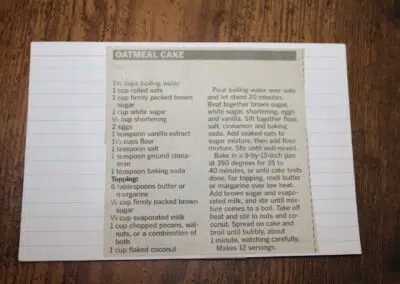 OATMEAL CAKE
1½ cups boiling water
1 cup rolled oats
1 cup firmly packed brown
sugar
1 cup white sugar
½ cup shortening
2 eggs
1 teaspoon vanilla extract
1½ cups flour
1 teaspoon salt
1 teaspoon ground cinna-
mon
1 teaspoon baking soda
Topping:
6 tablespoons butter or
margarine
cup firmly packed brown
sugar
cup evaporated milk
1 cup chopped pecans, wal-
nuts, or a combination of
both
1 cup flaked coconut
Pour boiling water over oats
and let stand 20 minutes.
Beat together brown sugar,
white sugar, shortening, eggs
and vanilla. Sift together flour,
salt, cinnamon and baking
soda. Add soaked oats to
sugar mixture, then add flour
mixture. Stir until well-mixed.
Bake in a 9-by-13-inch pan
at 350 degrees for 35 to
40 minutes, or until cake tests
done. For topping, melt butter
or margarine over low heat.
Add brown sugar and evapo-
rated milk, and stir until mix-
ture comes to a boil. Take off
heat and stir in nuts and co-
conut. Spread on cake and
broil until bubbly, about
1 minute, watching carefully.
Makes 12 servings.